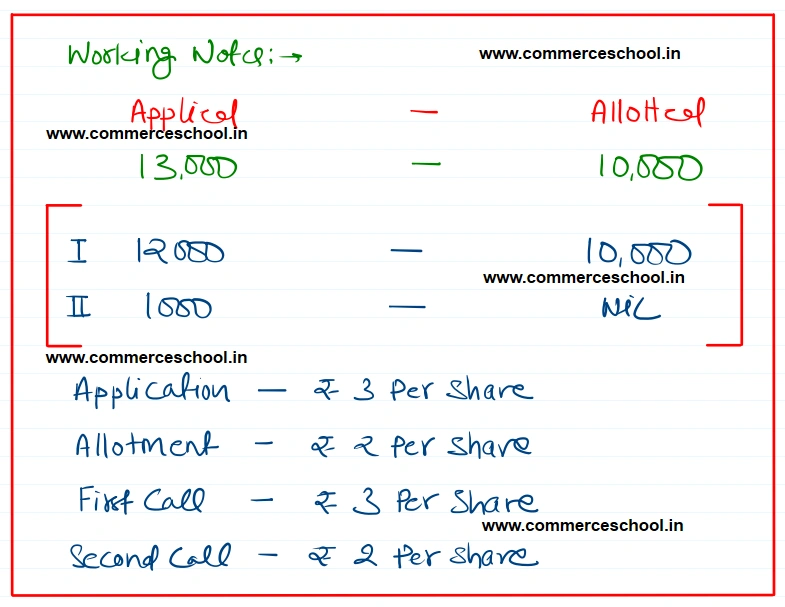 Working Notes:→ www.commerceschool.in
Applied — Allotted
www.commerceschool.in
13,000 — 10,000
I 12000 — 10,000
www.commerceschool.in
II 1000 — NiL
www.commerceschool.in
Application — ₹ 3 Per Share
Allotment — ₹ 2 Per Share
First Call — ₹ 3 Per Share
www.commerceschool.in
Second Call — ₹ 2 Per Share